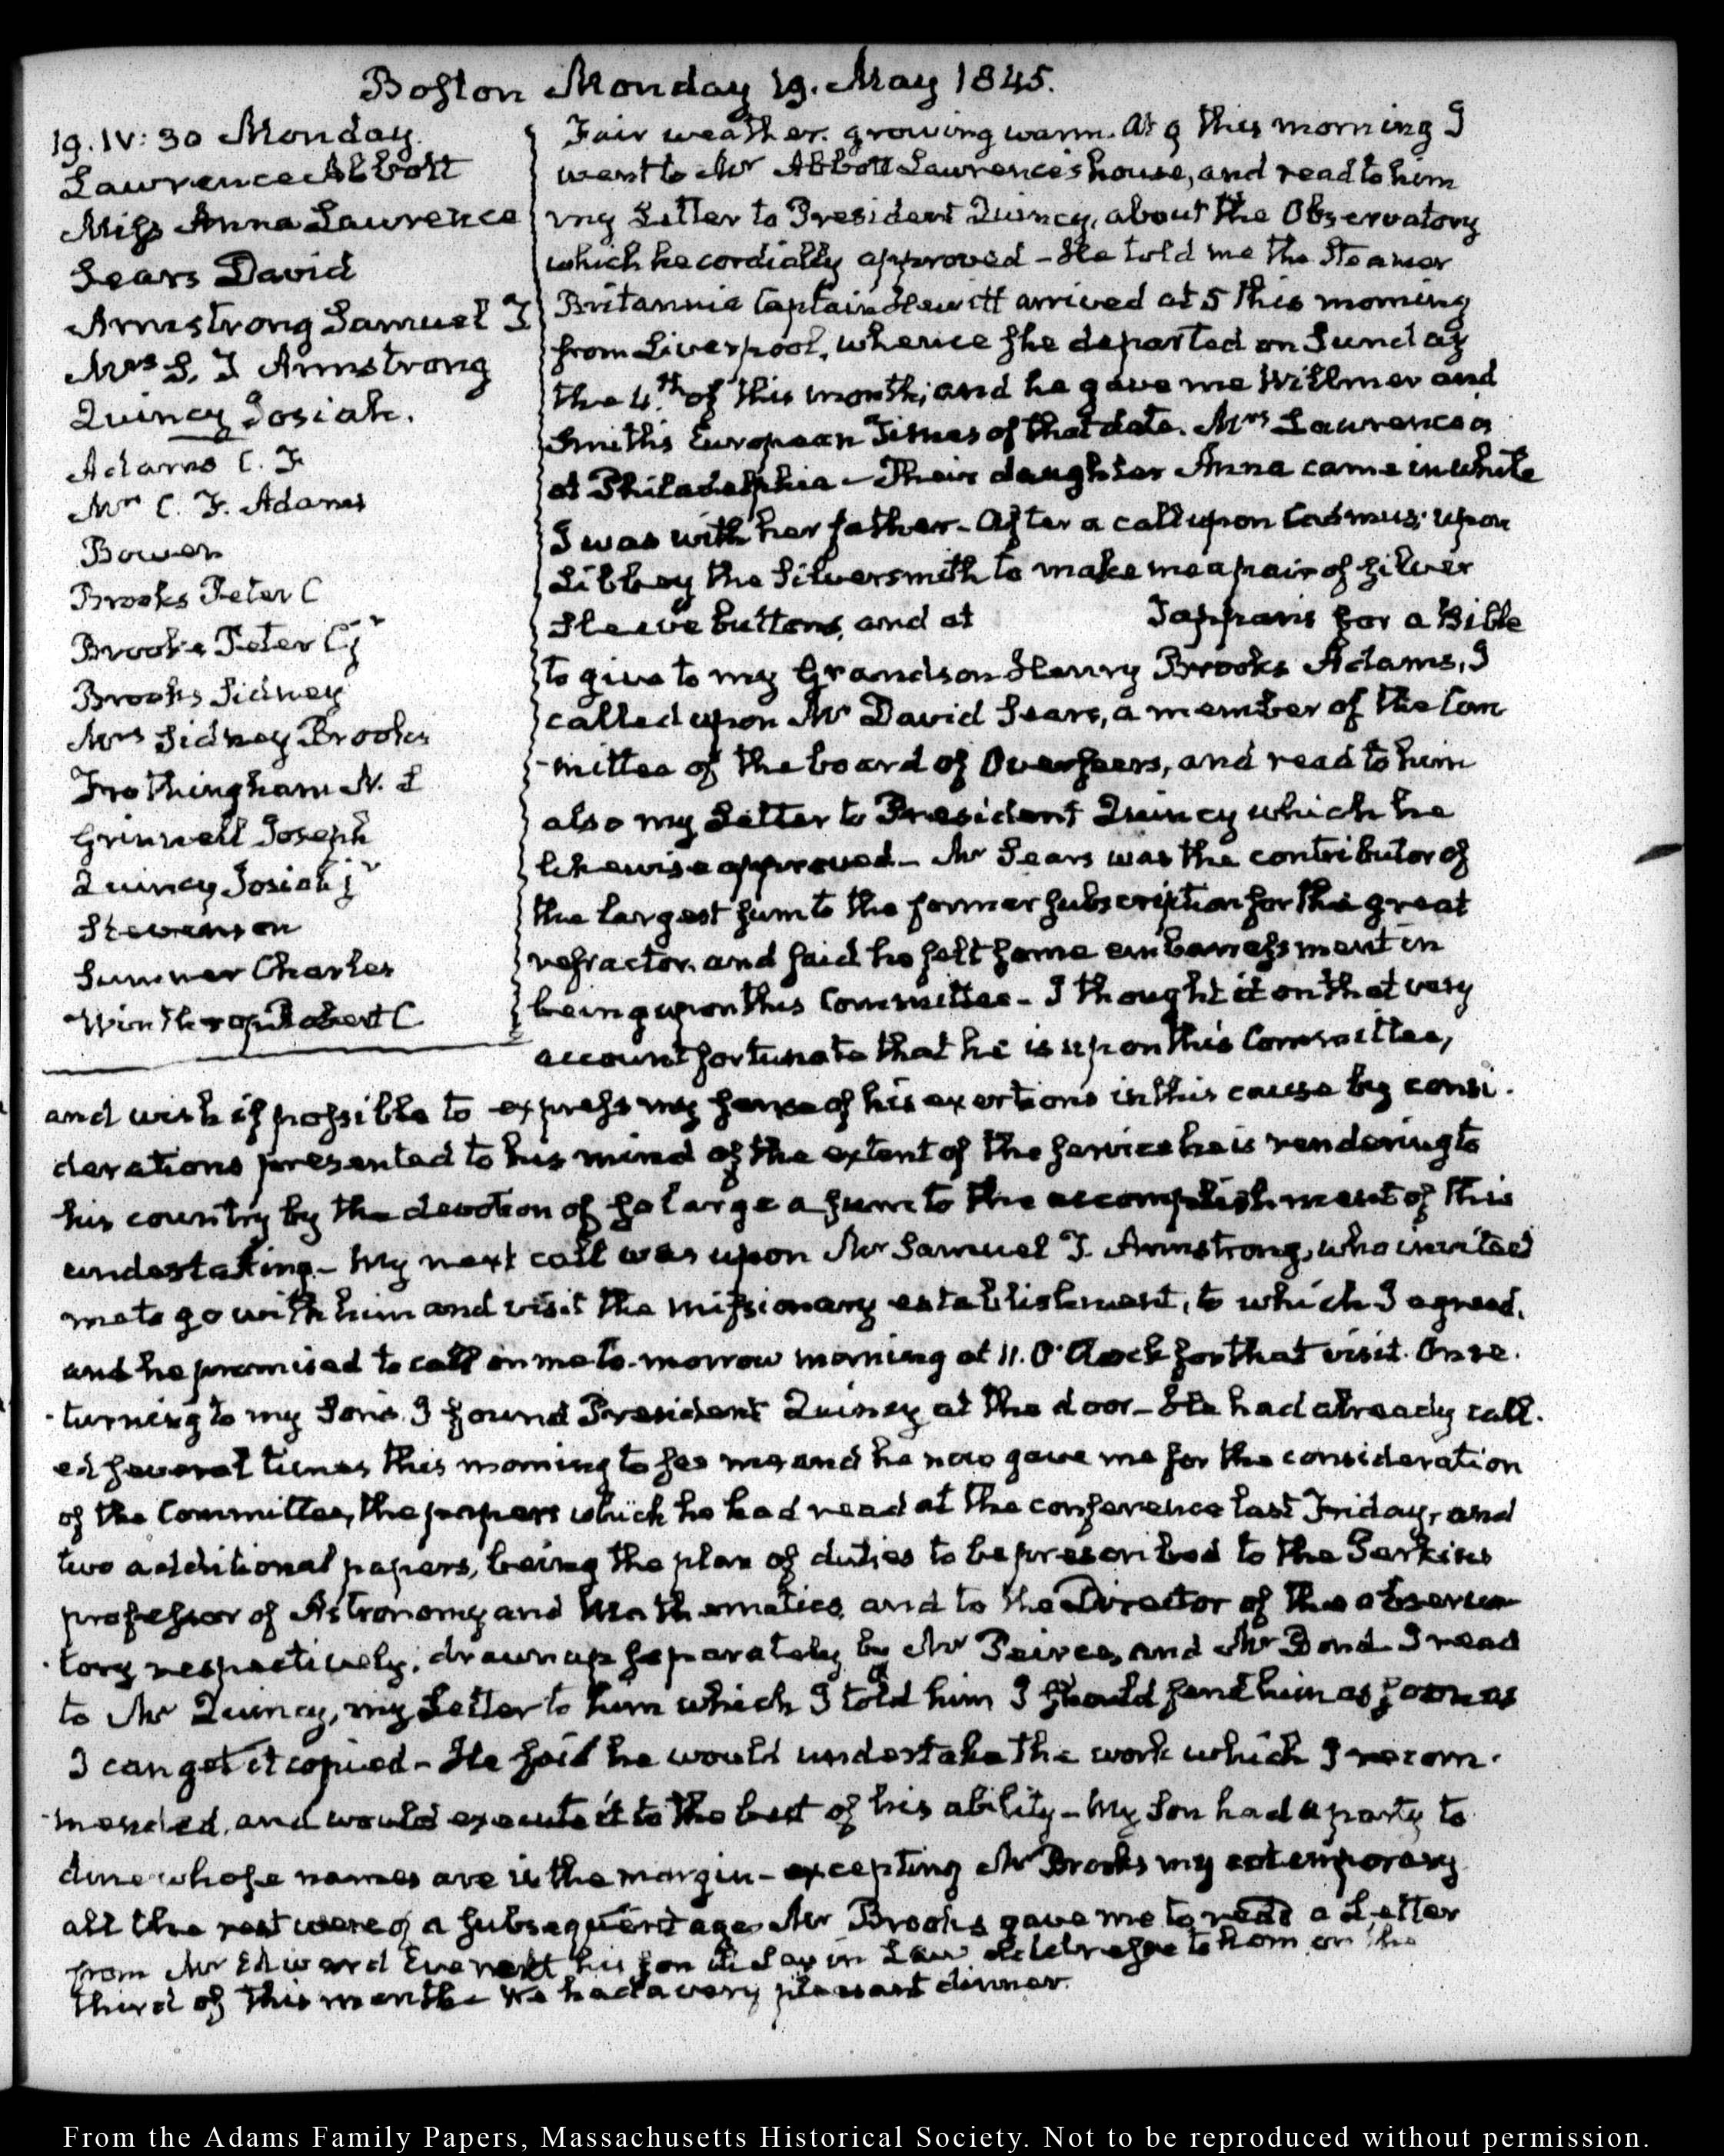 Boston Monday 19. May 1845.
19. IV: 30 Monday.
Lawrence Abbott
Miss Anna Lawrence
Sears David
Armstrong Samuel T
Mrs S. T Armstrong
Quincy Josiah.
Adams C. F.
Mrs C. F. Adams
Bowen
Brooks Peter C
Brooks Peter C jr
Brooks Sidney
Mrs Sidney Brooks
Frothingham N. L
Grinnell Joseph
Quincy Josiah jr
Stevenson
Sumner Charles
Winthrop Robert C
Fair weather. growing warm. At 9 this morning I
went to Mr Abbott Lawrence's house, and read to him
my Letter to President Quincy, about the Observatory
which he cordially approved - He told me the Steamer
Britannia Captain Hewitt arrived at 5 this morning
from Liverpool, whence she departed on Sunday
the 4th of this month; and he gave me Willmer and
Smith's European Times of that date. Mrs Lawrence is
at Philadelphia - Their daughter Anna came in while
I was with her father - After a call upon Cadmus; upon
Libbey the Silversmith to make me a pair of silver
sleeve buttons, and at Tappan's for a Bible
to give to my Grandson Henry Brooks Adams, I
called upon Mr David Sears, a member of the Com
-mittee of the board of Overseers, and read to him
also my Letter to President Quincy which he
likewise approved - Mr Sears was the contributor of
the largest sum to the former subscription for the great
refractor, and said he felt some embarrassment in
being upon this Committee - I thought it on that very
account fortunate that he is upon this Committee,
and wish if possible to express my sense of his exertions in this cause by consi-
derations presented to his mind of the extent of the service he is rendering to
his country by the devotion of so large a sum to the accomplishment of this
undertaking - My next call was upon Mr Samuel T. Armstrong, who invited
me to go with him and visit the missionary establishment, to which I agreed,
and he promised to call on me to-morrow morning at 11. O'Clock for that visit. On re-
-turning to my Sons I found President Quincy at the door - He had already call-
ed several times this morning to see me and he now gave me for the consideration
of the Committee, the papers which he had read at the conference last Friday, and
two additional papers, being the plan of duties to be prescribed to the Perkins
professor of Astronomy and Mathematics, and to the Director of the observa
-tory respectively; drawn up separately by Mr Peirce, and Mr Bond. I read
to Mr Quincy, my Letter to him which I told him I should send him as soon as
I can get it copied - He said he would undertake the work which I recom-
-mended, and would execute it to the best of his ability - My Son had a party to
dine whose names are in the margin - excepting Mr Brooks my cotemporary
all the rest were of a subsequent age. Mr Brooks gave me to read a Letter
from Mr Edward Everett his son in Law to him on the
third of this month - We had a very pleasant dinner.
From the Adams Family Papers, Massachusetts Historical Society. Not to be reproduced without permission.